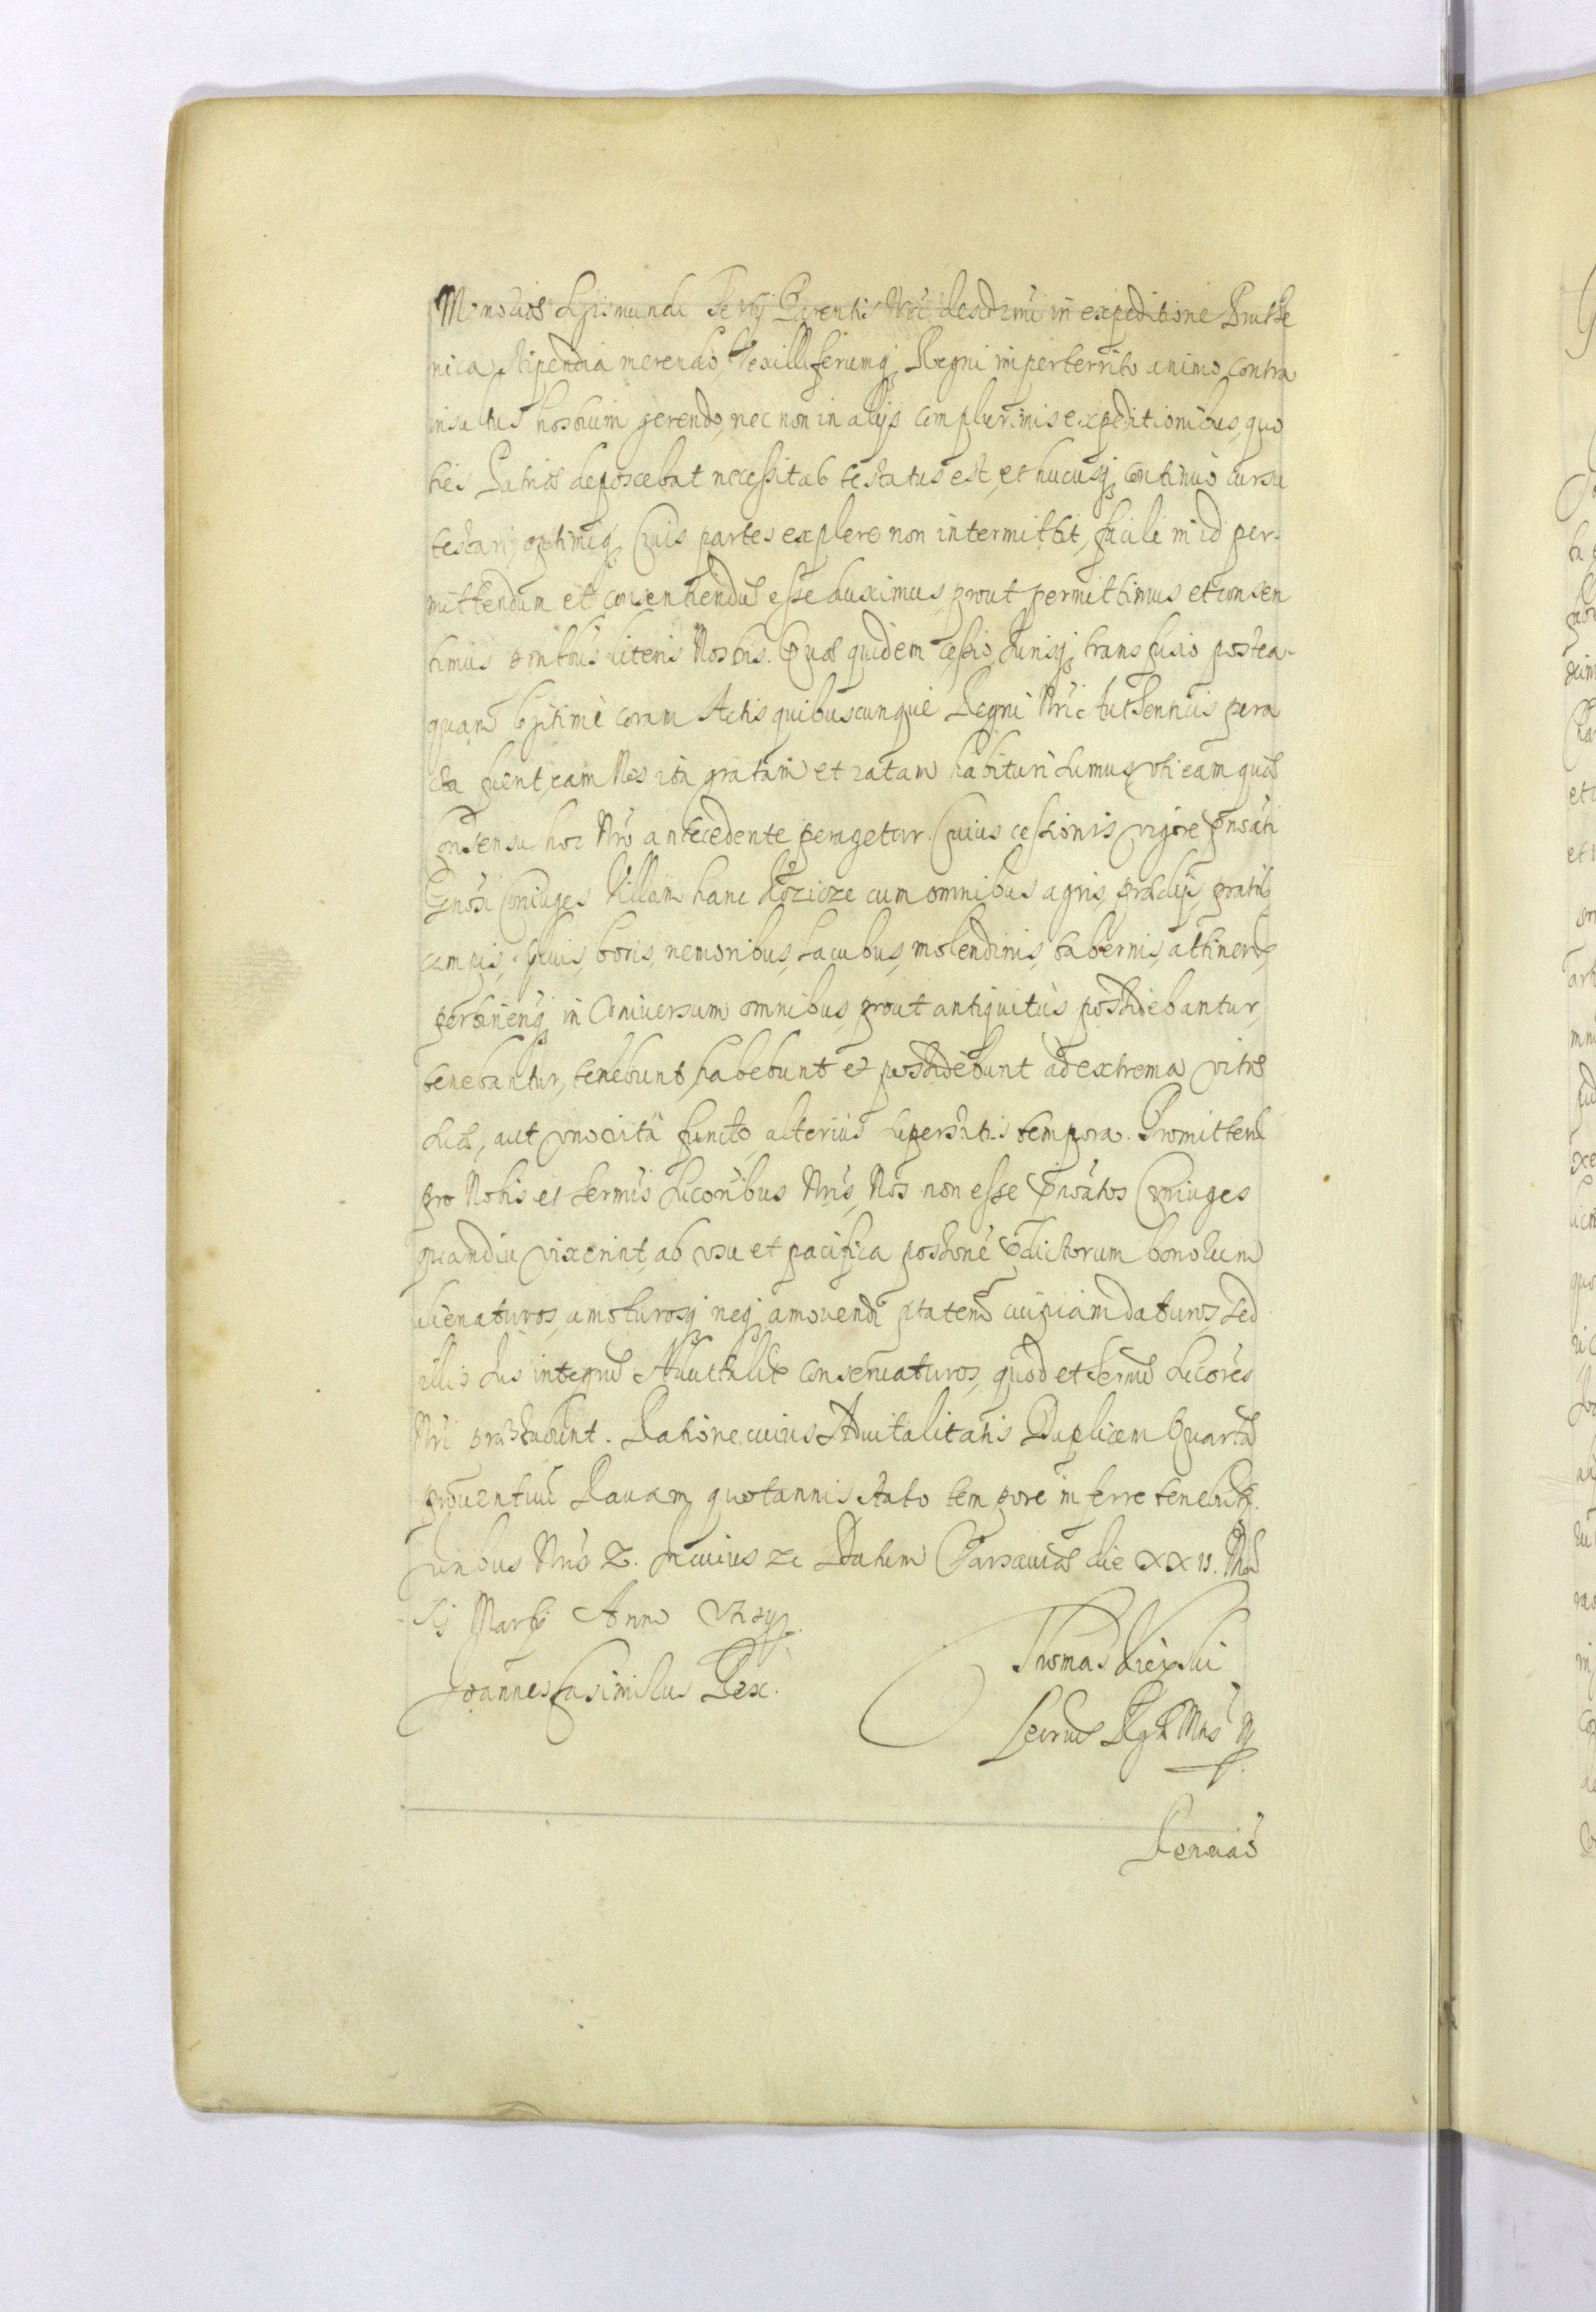 Memoriæ Sigismundi Tertij Parentis Nrī desidrmī in expeditione Pruthe
nica, Stipendia merendo, Vexilliferumq Regni imperterrito animo contra
insultus hostium gerendo, nec non in alijs complurimis expeditionibus, quo
ties Patriæ deposcebat necessitas testatus est, et hucusq continuo cursu
testari, optimiq Civis partes explere non intermittit, facile in id per-
mittendum et consentiendū esse duximus, prout permittimus et consen
timus pntibus literis Nostris. Quæ quidem cessio, Jurisq transfusio postea-
quam legitimè coram Actis quibuscunque Regni Nrī Authenticis pera
cta fuerit, eam Nos ita gratam et ratam habituri sumus, uti eam quæ
Consensu hoc Nrō antecedente perageretur. Cuius cessionis vigore pnoati
Gnosi Coniuges Villam hanc cum omnibus agris, prædijs, pratis,
campis, siluis, boris, nemoribus, Lacubus, molendinis, tabernis, attinen
pertinenq in Vniuersum omnibus, prout antiquitùs possidebantur,
tenebantur, tenebunt, habebunt et possidebunt ad extrema vitæ
suæ, aut uno vita functo, alterius superstitis tempora. Promitten
pro Nobis et Sermis Succoribus Nrīs, Nos non esse pnoatos Coniuges
quamdiu vixerint, ab usu et pacifica possione pdictorum bonorum
alienaturos, amoturosq neq amouendi ptatem cuipiam daturos, Sed
illis Jus integrū Aduitalite conseruaturos, quod et Sermi Succores
Nrī præstabunt. Ratione cuius Aduitalitatis Duplicem Quartā
prouentuū Rauam quotannis stato tempore inferre tenebūt.
Juribus Nrīs &. In cuius &c Datum Varsauiæ die XXV. Men
sis Martij Anno Vt sup.
Joannes Casimirus Rex.
Thomas
Secrus Rgæ Mtis